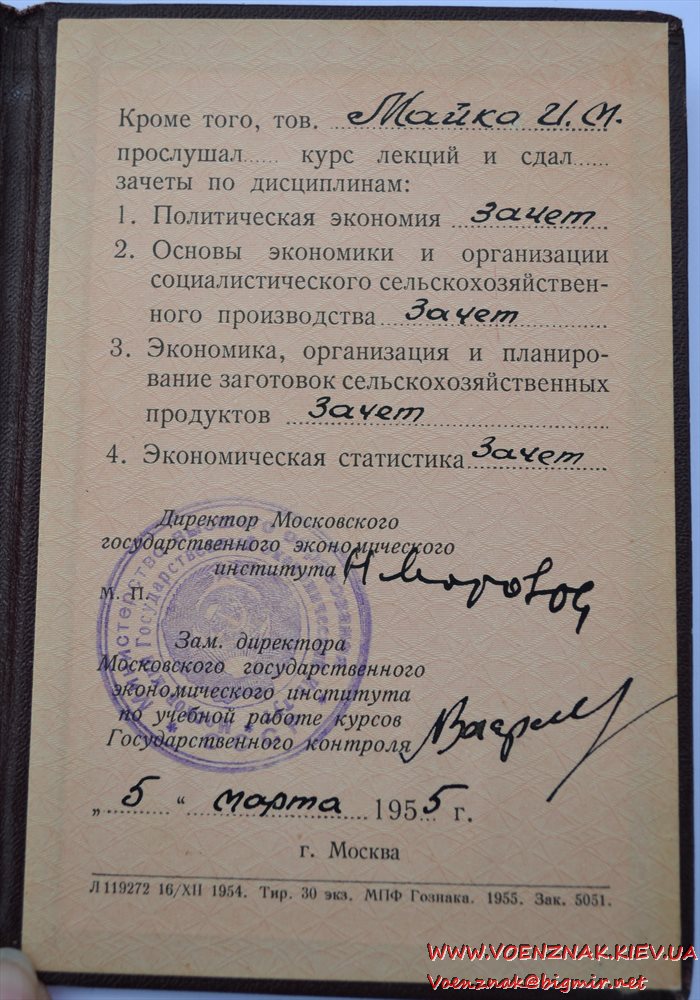 Кроме того, тов. Майко И.М.
прослушал...... курс лекций и сдал......
зачеты по дисциплинам:
1. Политическая экономия зачет
2. Основы экономики и организации
социалистического сельскохозяйствен-
ного производства зачет
3. Экономика, организация и планиро-
вание заготовок сельскохозяйственных
продуктов зачет
4. Экономическая статистика зачет
Директор Московского
государственного экономического
института
М. П.
Зам. директора
Московского государственного
экономического института
по учебной работе курсов
Государственного контроля
„ 5 “ марта 1955 г.
г. Москва
Л 119272 16/XII 1954. Тир. 30 экз. МПФ Гознака. 1955. Зак. 5051.
WWW.VOENZNAK.KIEV.UA
Voenznak@bigmir.net